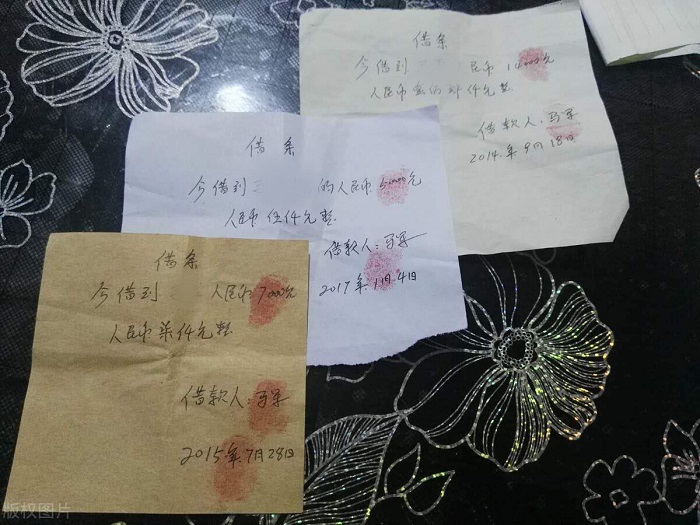 借条
今借到 民币 元
人民币 仟元整
借款人：马军
2014年9月18日
借条
今借到 的人民币 5000元
人民币伍仟元整
借款人：马军
2017年1月4日
借条
今借到 人民币：7000元
人民币柒仟元整
借款人：马军
2015年7月28日
版权图片